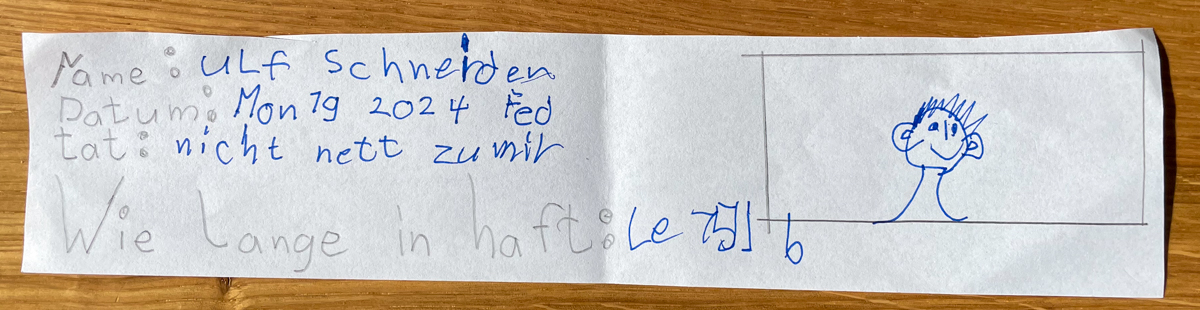 Name: ULf Schneiden
Datum: Mon 19 2024 Fed
tat: nicht nett zu mir
Wie Lange in haft: